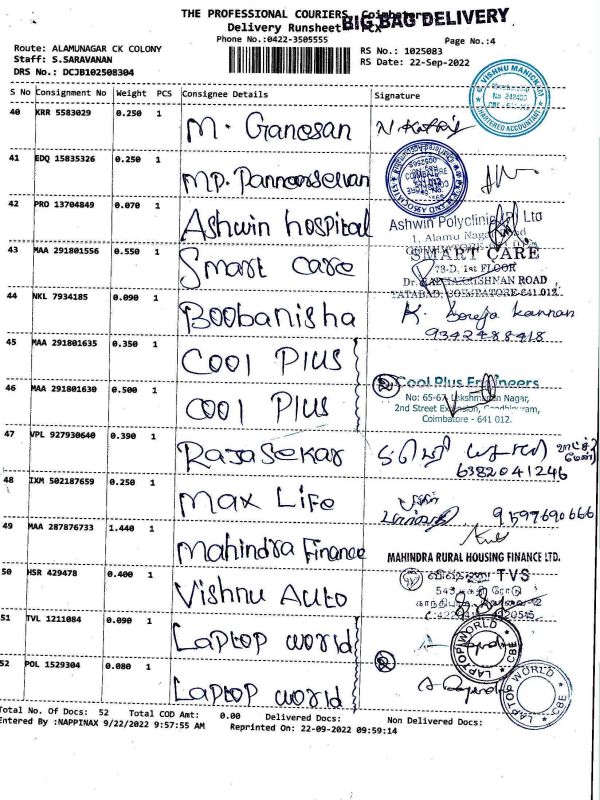 THE PROFESSIONAL COURIERS, Coimbatore
BIG BAG DELIVERY
Delivery Runsheet
Phone No.:0422-3505555
Page No.:4
Route: ALAMUNAGAR CK COLONY
Staff: S.SARAVANAN
DRS No.: DCJB102508304
RS No.: 1025083
RS Date: 22-Sep-2022
S No Consignment No Weight PCS Consignee Details Signature
VISHNU MANICKAM
CHARTERED ACCOUNTANT
40 KRR 5583029 0.250 1 M. Ganesan
41 EDQ 15835326 0.250 1 MP. Pannarselvan
42 PRO 13704849 0.070 1 Ashwin hospital
Ashwin Polyclinic Ltd
1, Alamu Nagar
43 MAA 291801556 0.550 1 Smart care
SMART CARE
73-D, 1st FLOOR
KRISHNAN ROAD
TATABAD, COIMBATORE-641 012.
44 NKL 7934185 0.090 1 Boobanisha
9342488418
45 MAA 291801635 0.350 1 COOL PLUS
46 MAA 291801630 0.500 1 COOL PLUS
2 Cool Plus Engineers
No: 65-67, Lakshmanan Nagar,
2nd Street Extension, Gandhipuram,
Coimbatore - 641 012.
47 VPL 927930640 0.390 1 Rajasekar
6382041246
48 IXM 502187659 0.250 1 Max Life
9597690666
49 MAA 287876733 1.440 1 Mahindra Finance
MAHINDRA RURAL HOUSING FINANCE LTD.
50 HSR 429478 0.400 1 Vishnu Auto
TVS
51 TVL 1211084 0.090 1 Laptop world
LAPTOP WORLD CBE
52 POL 1529304 0.080 1 Laptop world
2
LAPTOP WORLD CBE
Total No. Of Docs: 52 Total COD Amt: 0.00 Delivered Docs: Non Delivered Docs:
Entered By :NAPPINAX 9/22/2022 9:57:55 AM Reprinted On: 22-09-2022 09:59:14